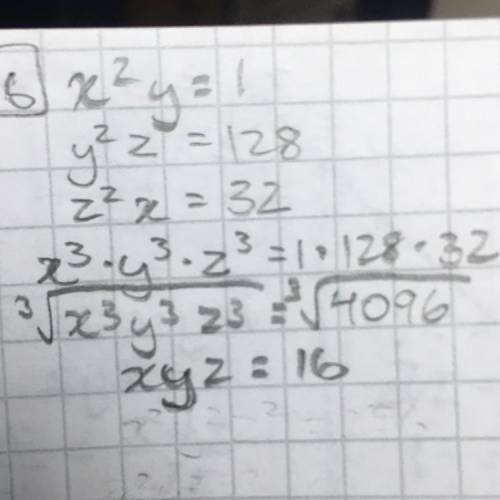 6 x²y = 1
y²z = 128
z²x = 32
x³·y³·z³ = 1·128·32
³√x³y³z³ = ³√4096
xyz = 16